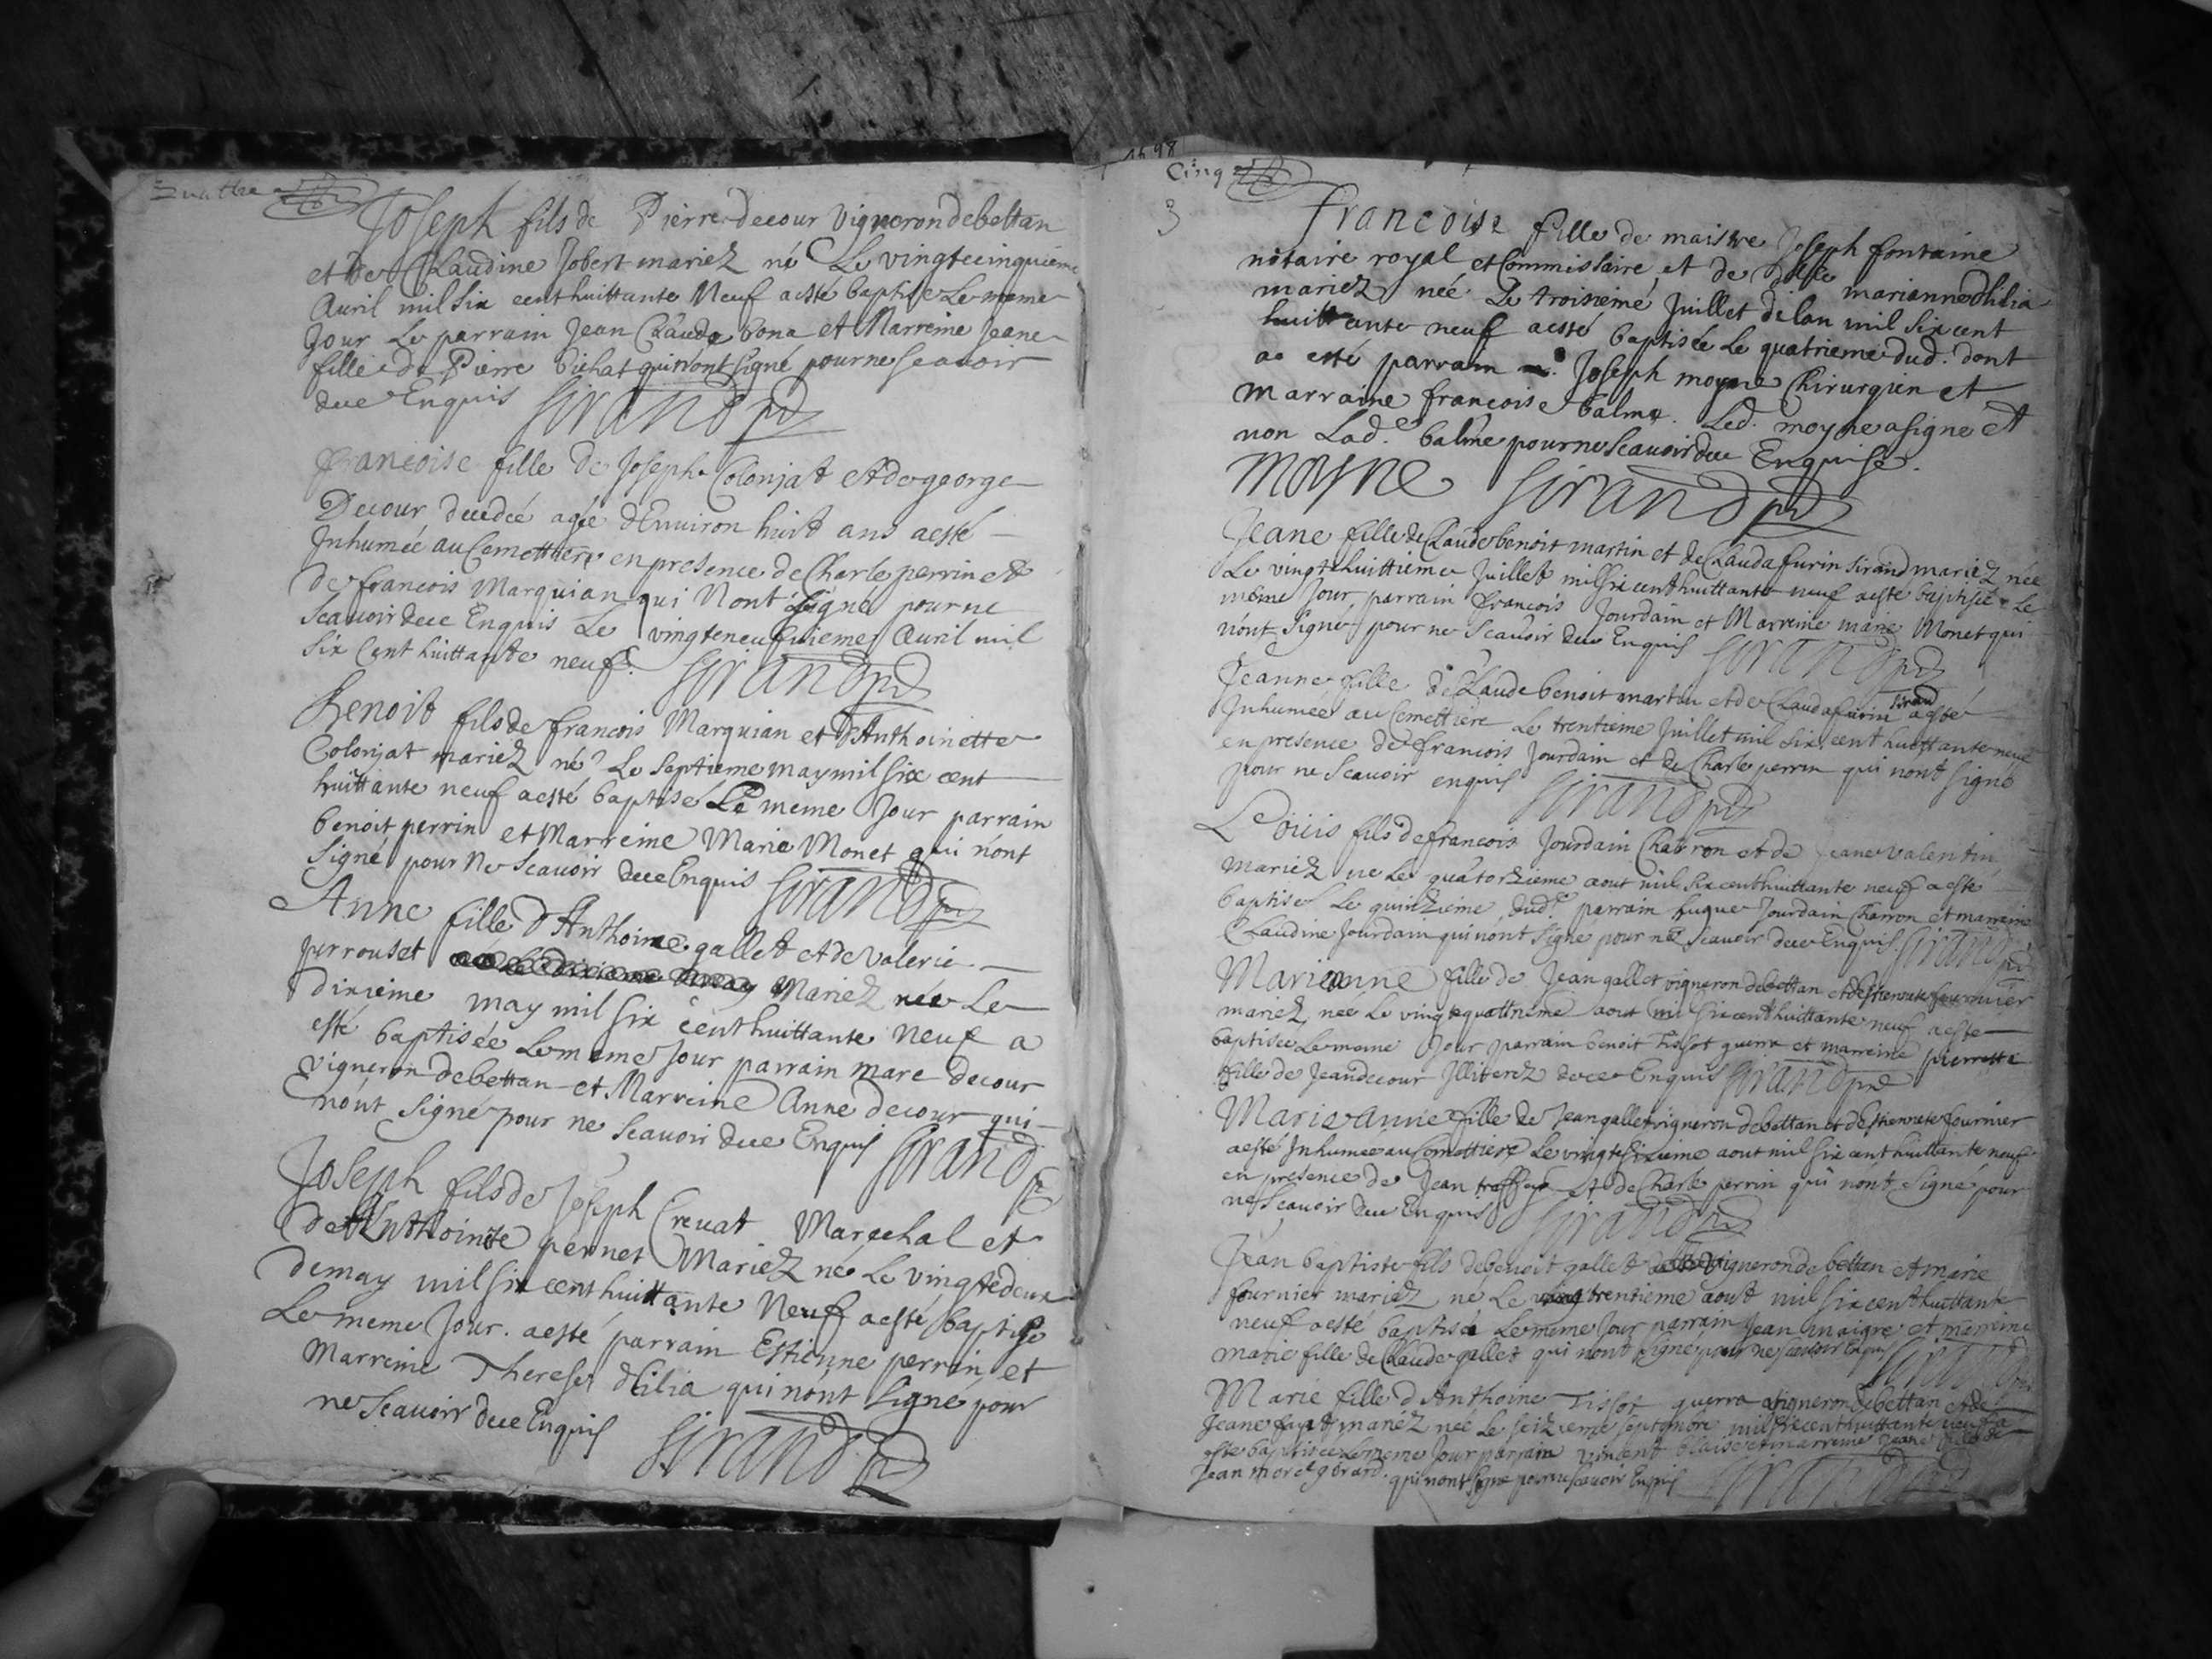 Quatre
Joseph fils de Pierre decour vigneron debettan
et de Claudine Jobert mariez né Le vingtecinquieme
Auril mil six cent huittante Neuf aesté baptise Le meme
Jour Le parrain Jean Claude bona et Marreine Jeane
fille de Pierre Dichat qui nont signé pour ne scauoir
dece Enquis Sirand
francoise fille De Joseph Colonjat et de george
Decour decedeé ageé d'Enuiron huit ans aesté
Inhumée au Cemettiere en presence de Charle perrin et
de francois Marquian qui Nont signé pour ne
scauoir dece Enquis Le vingteneufuieme Auril mil
six Cent huittante neuf. Sirand
Benoit fils de francois Marquian et d'Anthoinette
Colonjat mariez né Le septieme may mil six cent
huittante neuf aesté baptisé Le meme Jour parrain
benoit perrin et Marreine Marie Monet qui nónt
signé pour Ne scauoir dece Enquis Sirand
Anne fille d'Anthoine gallet et de valerie
perrouset Mariez née Le
dixieme may mil six cent huittante neuf a
esté baptisée Le meme Jour parrain marc decour
vigneron de bettan et Marreine Anne decour qui
nónt signé pour ne scauoir dece Enquis Sirand
Joseph fils de Joseph Creuat Marechal et
de Anthoinete pernet Mariez né Le vingtedeux
demay mil six cent huittante Neuf aesté baptise
Le meme Jour. aesté parrain Estienne perrin et
Marreine Therese dhilia qui nónt signé pour
ne scauoir dece Enquis Sirand
1698
Cinq
3
francoise fille de maistre Joseph fontaine
notaire royal et Commissaire et de marianne dhilia
mariez neé Le troisieme Juillet de lan mil six cent
huittante neuf aesté baptisée Le quatrieme dud. dont
ae esté parrain Joseph moyne Chirurgien et
marraine francoise balme. Led. moyne a signe et
non Lad.e balme pour ne scauoir dece Enquise.
moyne Sirand
Jeane fille de Claude benoit martin et de Claudafurin Sirand mariez neé
Le vingtehuittieme Juillet mil six cent huittante neuf aeste baptisée Le
même Jour parrain francois Jourdain et Marreine marie Monet qui
nont signé pour ne scauoir dece Enquis Sirand
Jeanne fille de Claude benoit martin et de Claudafurin Sirand aesté
Inhumeé au Cemettiere Le trentieme Juillet mil six cent huittante neuf
en presence de francois Jourdain et de Charle perrin qui nont signé
pour ne scauoir enquis Sirand
Loüis fils de francois Jourdain Charron et de Jeane valentin
mariez ne Le quatorzieme aout mil six cent huittante neuf aeste
baptisé Le quinzieme dud. parrain hugue Jourdain Charron et marreine
Claudine Jourdain qui nont signe pour ne scauoir dece Enquis Sirand
Marieanne fille de Jean gallet vigneron debettan et destienete fournier
mariez neé Le vingtequattrieme aout mil six cent huittante neuf aeste
baptisée Le meme Jour parrain benoit Tissot guerra et marreine pierrette
fille de Jean decour Illiterez dece Enquis Sirand
Marie anne fille de Jean gallet vigneron de bettan et destienete fournier
aesté Inhumeé au Cemettiere Le vingtesixieme aout mil six cent huittante neuf
en presence de Jean et de Charle perrin qui nónt signé pour
ne scauoir dece Enquis Sirand
Jean baptiste fils de benoit gallet vigneron de bettan et marie
fournier mariez ne Le trentieme aout mil six cent huittante
neuf aesté baptisé Le meme Jour parrain Jean maigre et marreine
marie fille de Claude gallet qui nont signé pour ne scauoir Enquis Sirand
Marie fille d'Anthoine Tissot guerra vigneron de bettan et de
Jeane mariez neé Le seizieme septembre mil six cent huittante neuf a
este baptiseé Le meme Jour parrain vincent blaise et marreine Jeane fille de
Jean morel gerard. qui nont signe pour ne scauoir Enquis Sirand